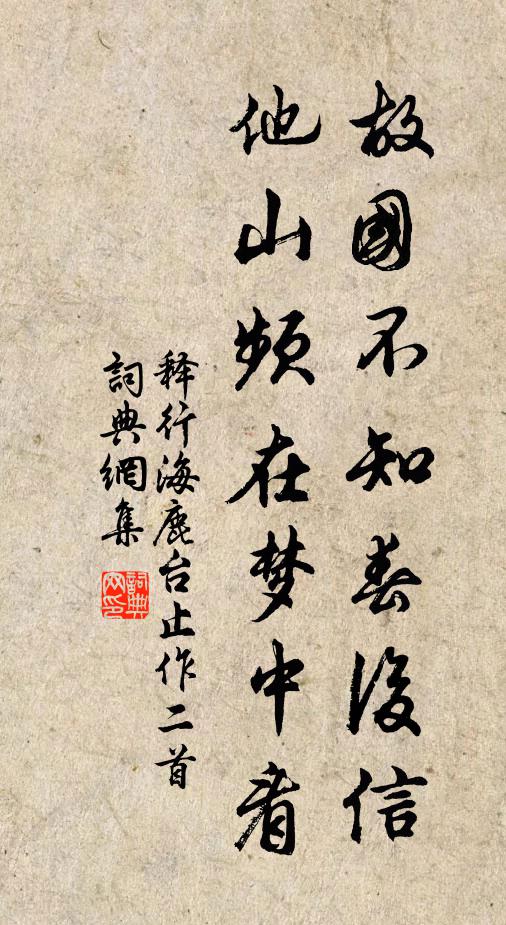 故國不知春後信
他山頻在梦中看
释行海鹿台止作二首
詞典網集
詞典
网印